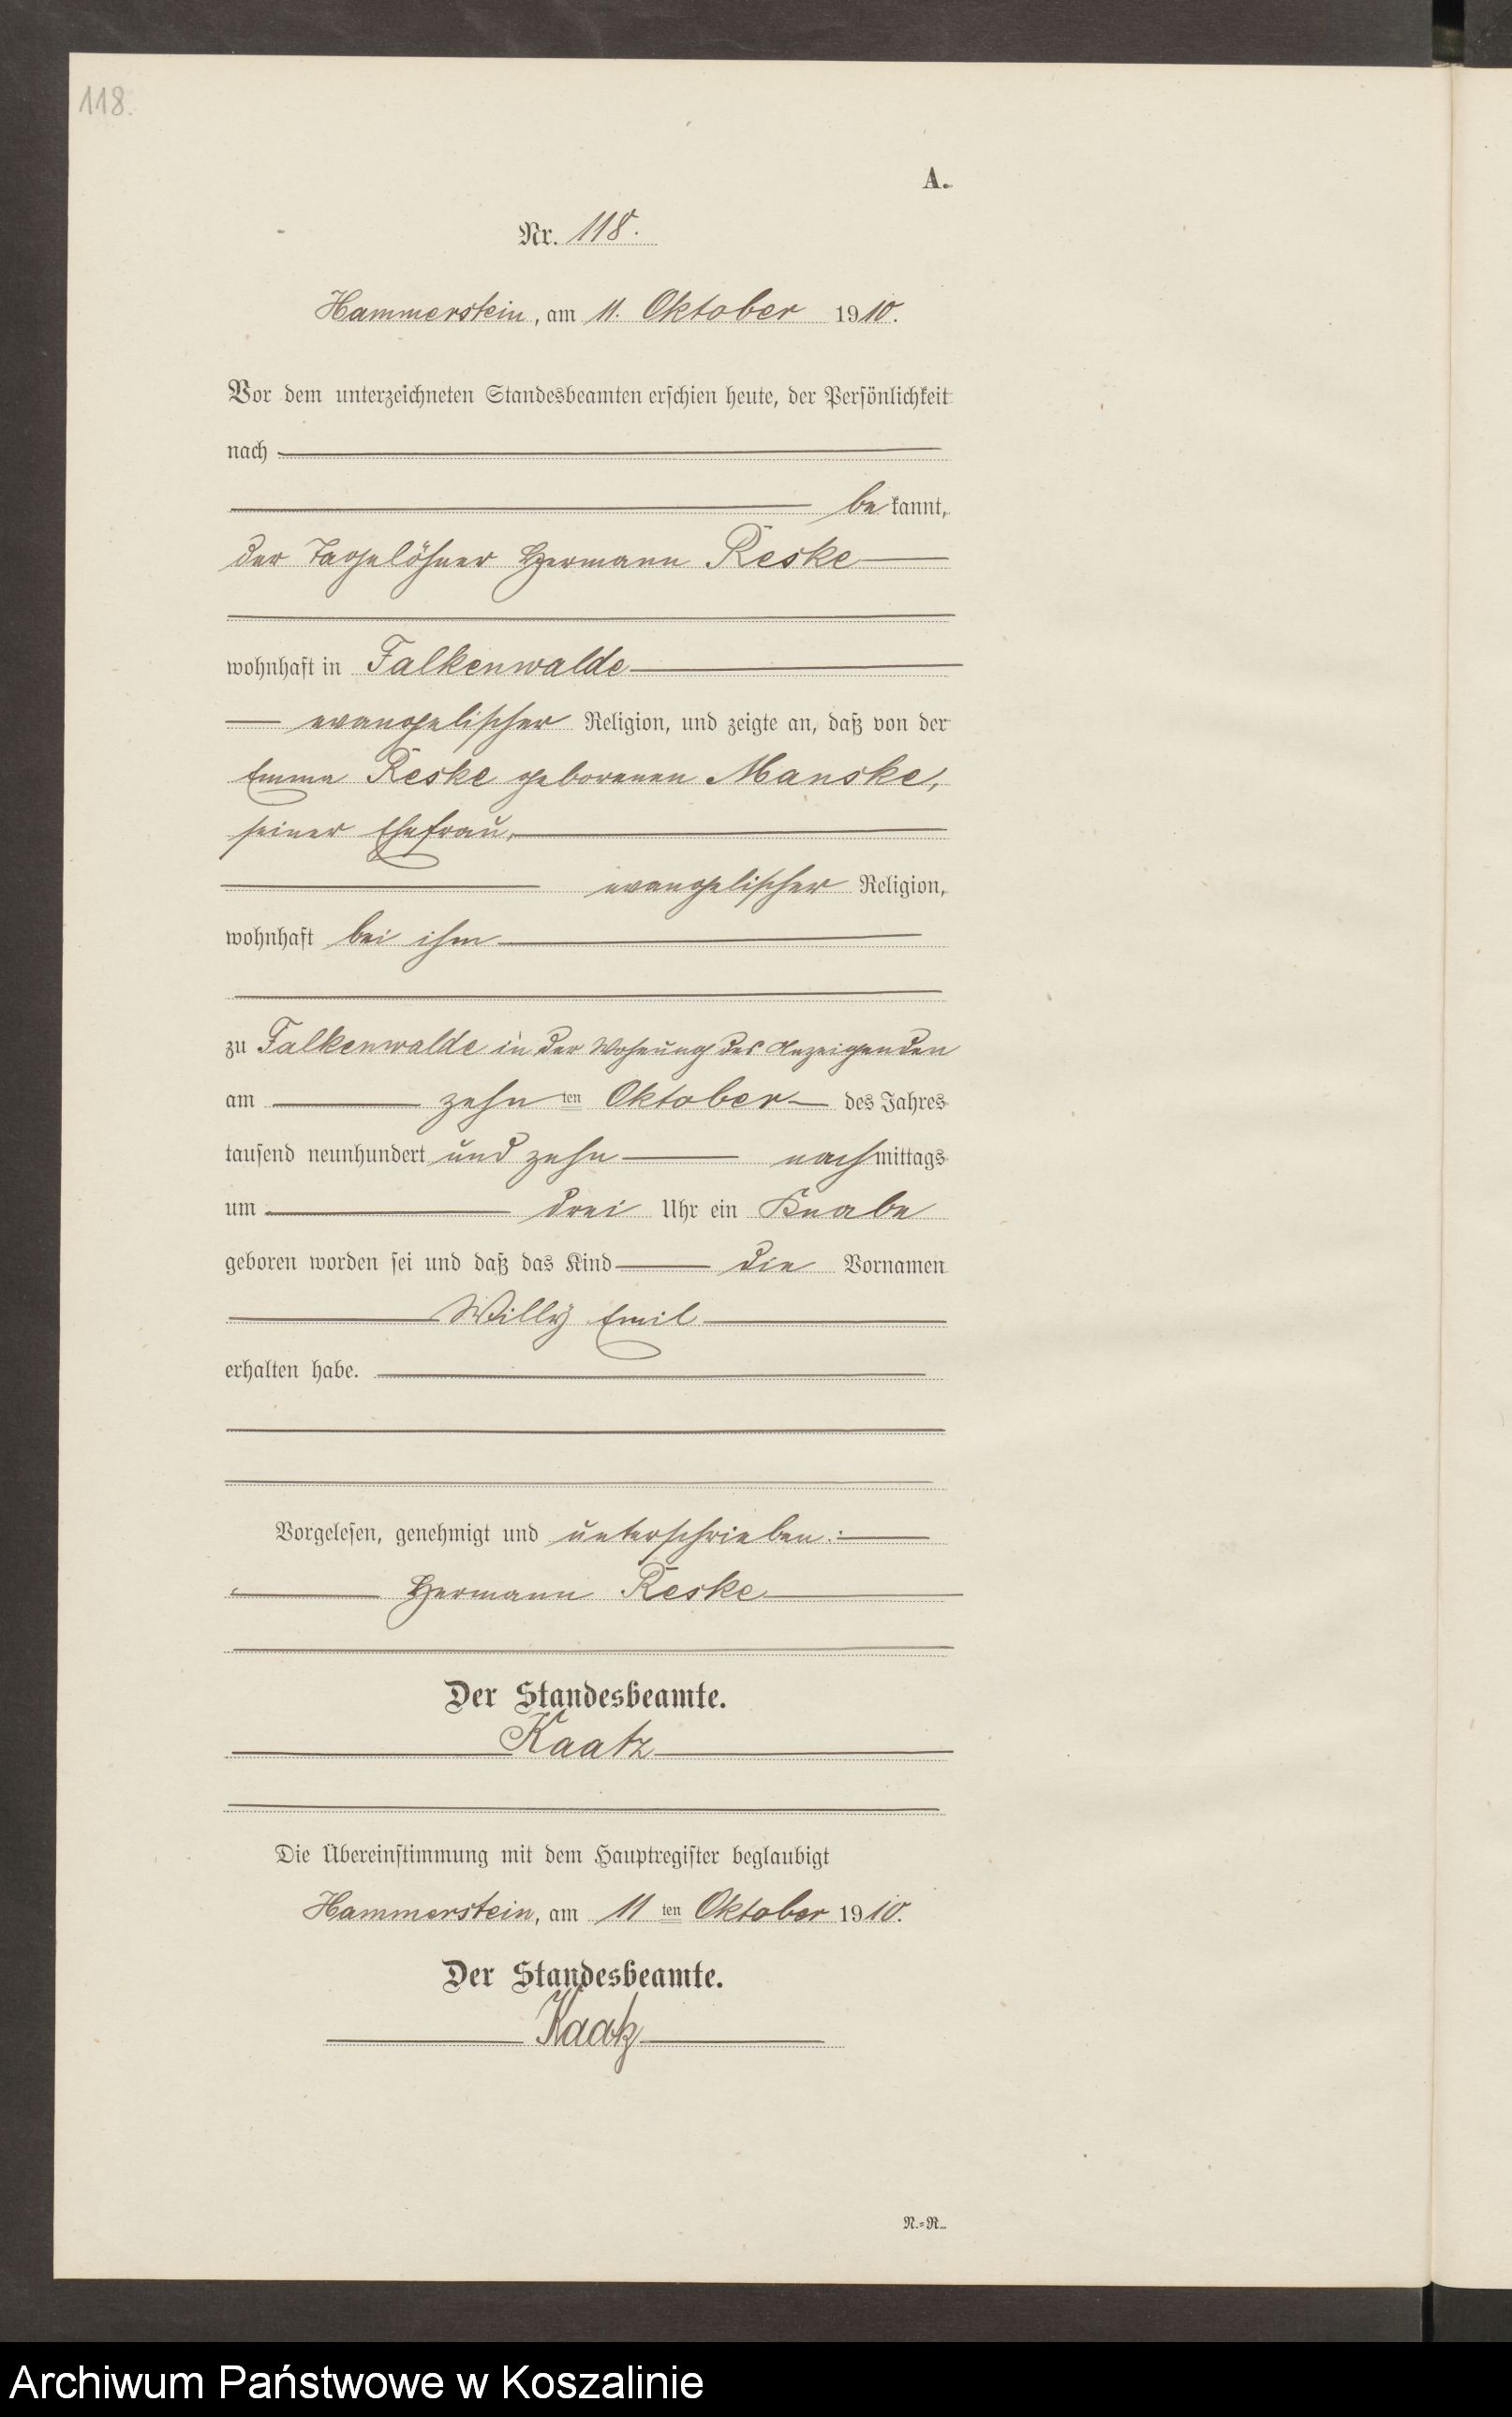 118.
A.
Nr. 118.
Hammerstein, am 11. Oktober 1910.
Vor dem unterzeichneten Standesbeamten erschien heute, der Persönlichkeit
nach
bekannt,
der Tagelöhner Hermann Reske
wohnhaft in Falkenwalde
evangelischer Religion, und zeigte an, daß von der
Emma Reske geborenen Manske,
seiner Ehefrau,
evangelischer Religion,
wohnhaft bei ihm
zu Falkenwalde in der Wohnung des Anzeigenden
am zehnten Oktober des Jahres
tausend neunhundert und zehn nachmittags
um drei Uhr ein Knabe
geboren worden sei und daß das Kind die Vornamen
Willy Emil
erhalten habe.
Vorgelesen, genehmigt und unterschrieben:
Hermann Reske
Der Standesbeamte.
Kaatz
Die Übereinstimmung mit dem Hauptregister beglaubigt
Hammerstein, am 11ten Oktober 1910.
Der Standesbeamte.
Kaatz
N.=R.
Archiwum Państwowe w Koszalinie